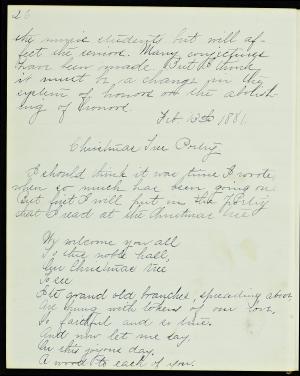 26
the music students but will af-
fect the seniors. Many conjectures
have been made. But I think
it must be a change in the
system of honors or the abolish-
ing of honors
Feb 13th 1881.
Christmas Tree Poetry
I should think it was time I wrote,
when so much has been going on
But first I will put in the poetry
that I read at the Christmas tree
We welcome you all
To this noble hall,
Our Christmas tree
to see
Its grand old branches, spreading above
Are hung with tokens of our love,
So faithful and so true.
And now let me say
On this joyous day,
A word to each of you.